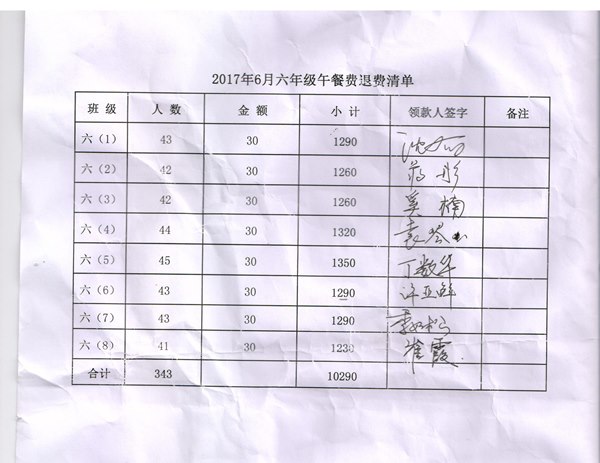 2017年6月六年级午餐费退费清单
班 级 人 数 金 额 小 计 领款人签字 备注
六（1） 43 30 1290
六（2） 42 30 1260 蒋彤
六（3） 42 30 1260 奚楠
六（4） 44 30 1320 袁岑
六（5） 45 30 1350 丁数华
六（6） 43 30 1290 许亚鲜
六（7） 43 30 1290
六（8） 41 30 1230 崔霞
合计 343 10290